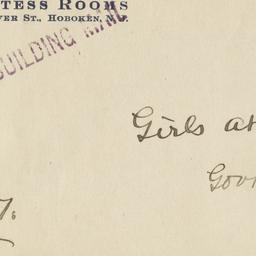 TESS ROOMS
VER ST., HOBOKEN, N.J.
BUILDING MAIL
Girls at
Gov
7.